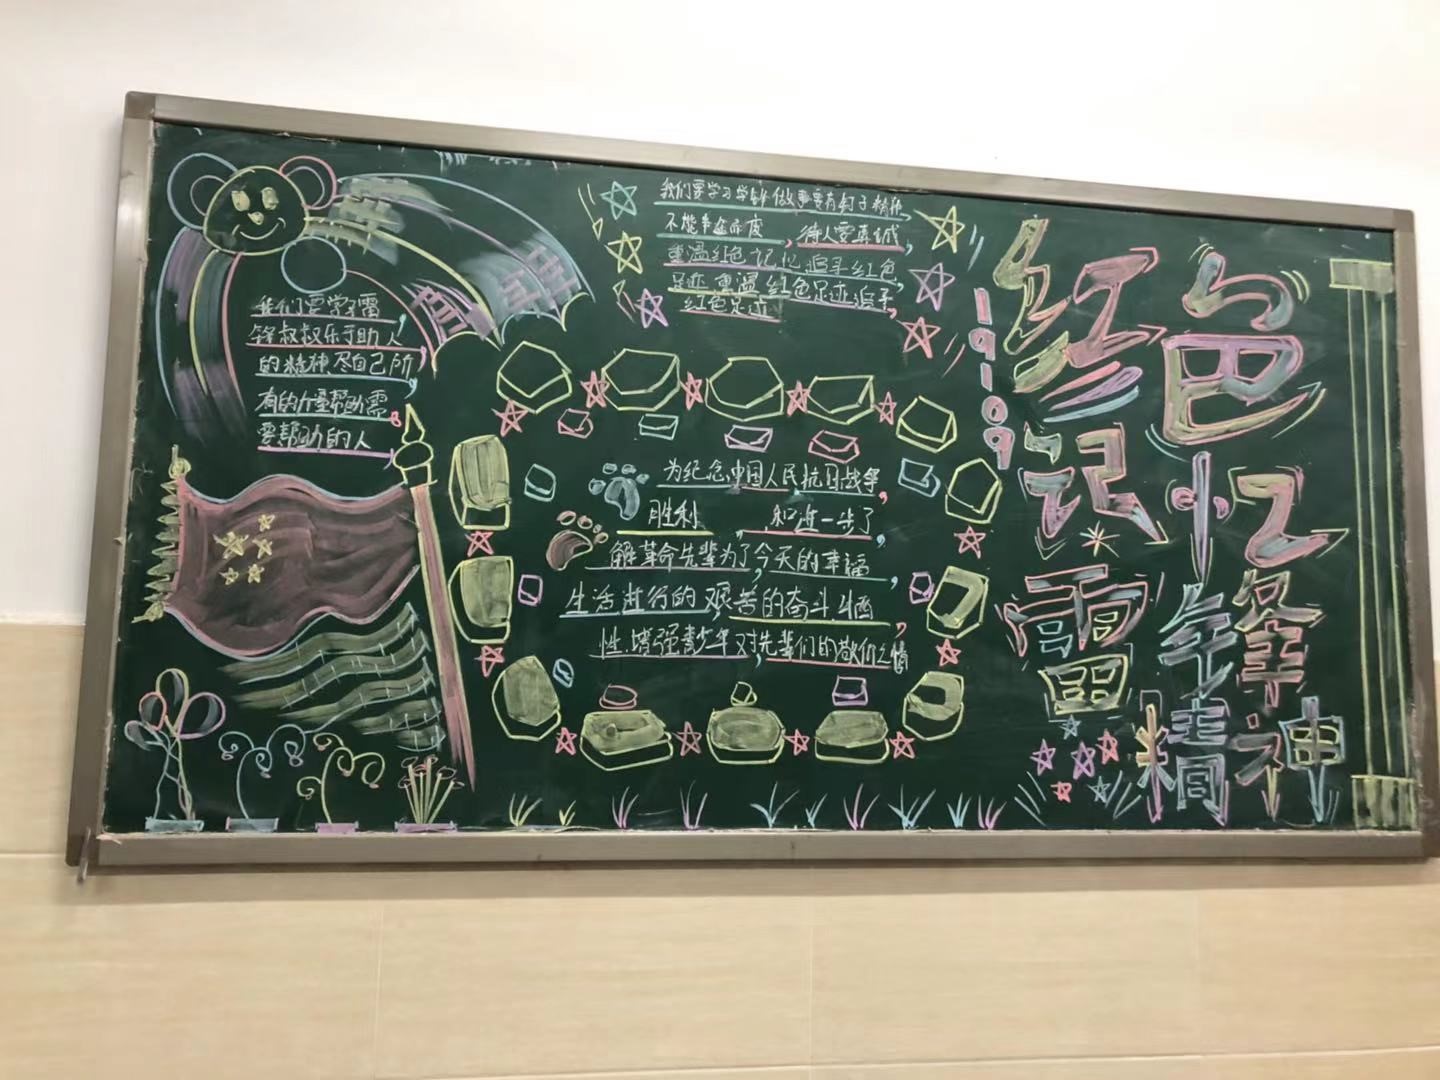 我们要学习雷
锋叔叔乐于助人
的精神尽自己所
有的力量帮助需
要帮助的人
我们要学习 做事要有钉子精神
不能半途而废，待人要真诚，
重温红色记忆追寻红色
足迹重温红色足迹追寻
红色足迹
为纪念中国人民抗日战争
胜利，和进一步了
解革命先辈为了今天的幸福
生活进行的艰苦的奋斗
性，增强青少年对先辈们的敬仰之情
191109
红色
记忆
雷锋
精神